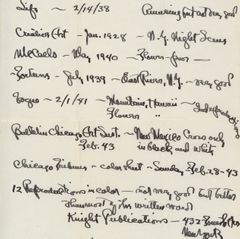 Life ~ 2/14/38 Amusing but not very good
Creative Art - Jan. 1928 - N.Y. Night Scenes
McCalls - May 1940 - Flower
Fortune - July 1939 - East River, N.Y. - very good
Vogue - 2/1/41 - Mountains, Hawaii
Flowers
Bulletin Chicago Art Inst. - New Mexico Cross only
Feb. 43 in black and white
Chicago Tribune - color sheet - Sunday Feb. 28-43
12 Reproductions in color - not very good but better
of his written word
Knight Publications - 432
New York